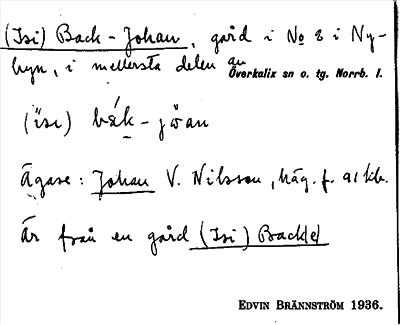 (Isi) Back-Johan, gård i No 8 i Ny-
byn, i mellersta delen av
Överkalix sn o. tg. Norrb. l.
(ìsı) bák-jωan
Ägare: Johan V. Nilsson, häg. f. 91 kb.
Är från en gård (Isi) Back(e)
EDVIN BRÄNNSTRÖM 1936.